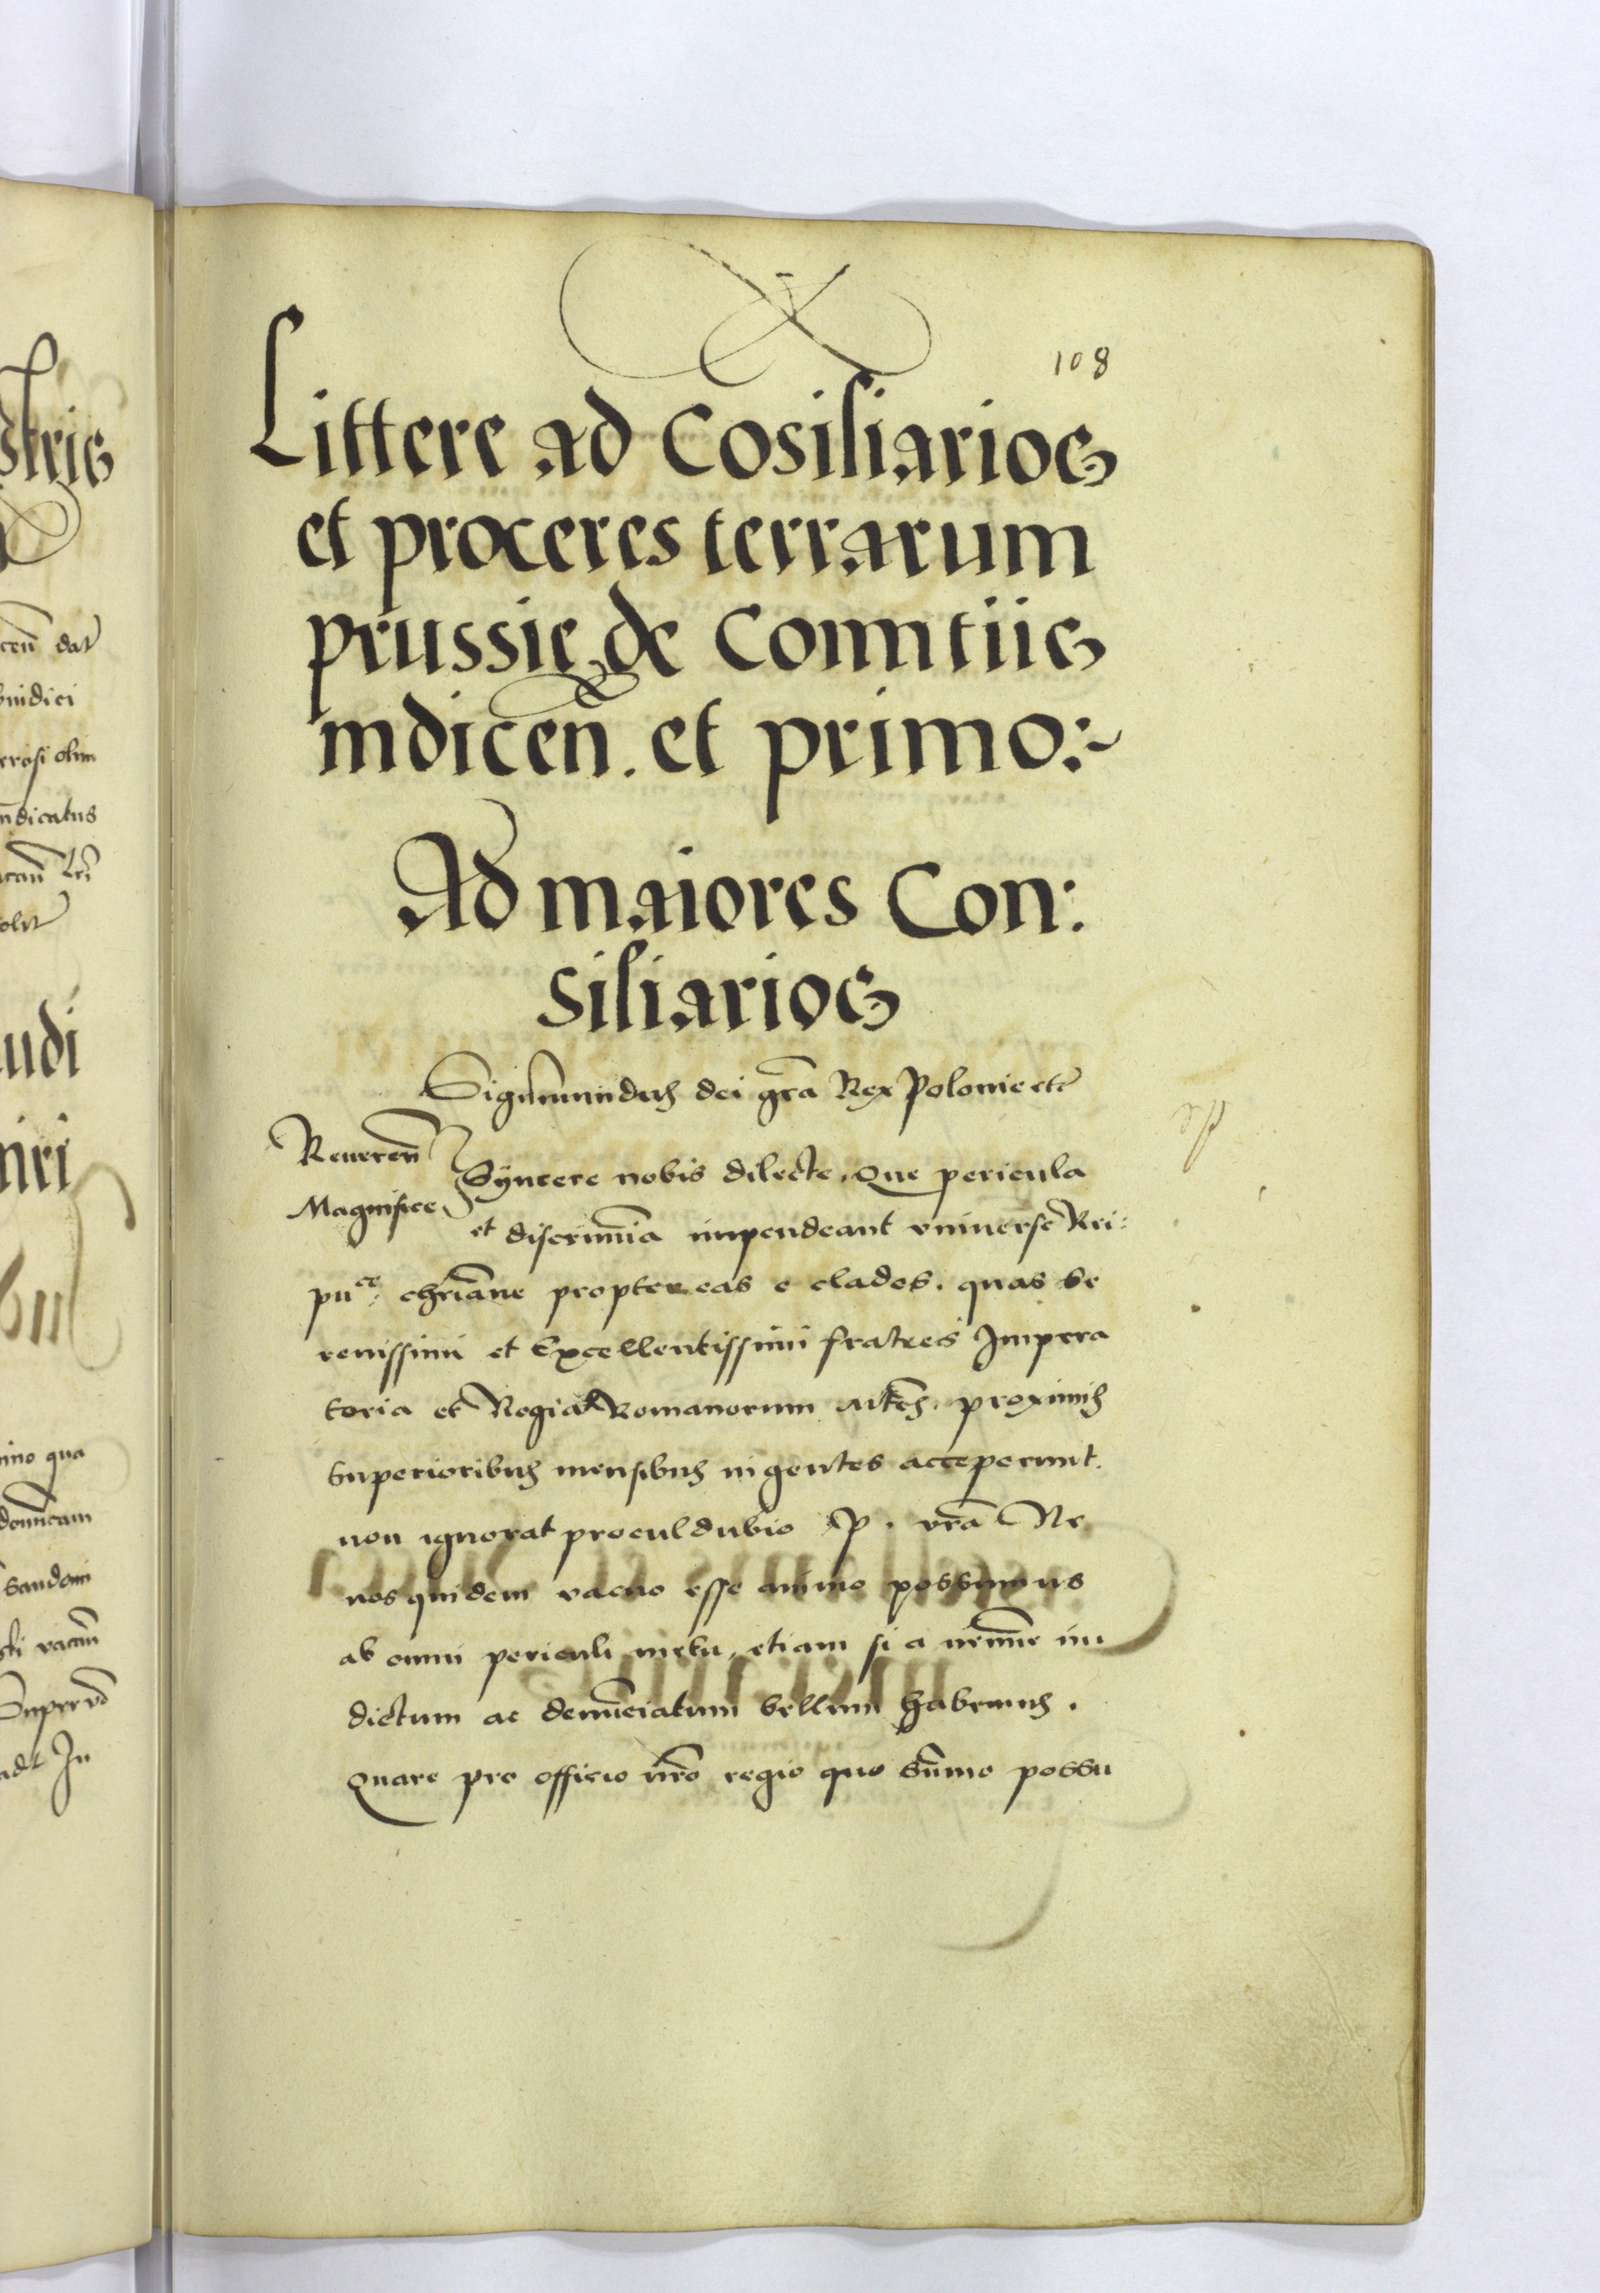 108
Littere ad Cōsiliarios
et proceres terrarum
prussie de Comitiis
indicen̄. et primo:~
Ad maiores Con:
siliarios
Sigismundus dei gr̄a Rex Polonie etc̄
Reueren̄
Magnifice
Syncere nobis dilecte, Que pericula
et discrimīa impendeant vniuerse Rei:
puce: chrīane propter eas e clades. quas se
renissimi et Excellentissimi fratres Impera
toria et Regia Romanorum Mtes. proximis
superioribus mensibus ingentes acceperunt.
non ignorat proculdubio P. vr̄a Ne
nos quidem vacuo esse animo possumus
ab omni periculi metu, etiam si a nemīe in
dictum ac denūciatum bellum habemus.
Quare pro officio nr̄o regio quo sūmo possu